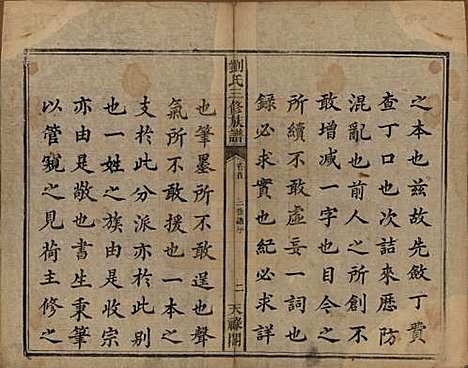 之本也茲故先斂丁費
查丁口也次詰來歷防
混亂也前人之所創不
敢增減一字也目今之
所續不敢虛妄一詞也
錄必求實也紀必求詳
劉氏三修族譜
卷首
三修譜序
二
天祿閣
也筆墨所不敢逞也聲
氣所不敢援也一本之
支於此分派亦於此別
也一姓之族由是收宗
亦由是敬也書生秉筆
以管窺之見荷主修之